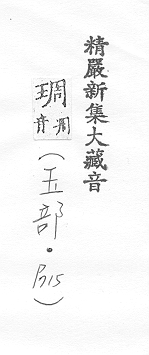 精嚴新集大藏音
琱
音凋
(玉部·P15)